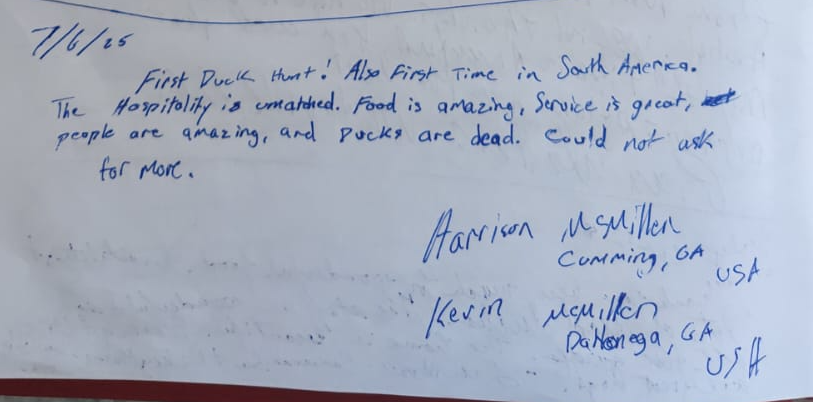 7/6/25
First Duck Hunt! Also First Time in South America.
The Hospitality is unmatched. Food is amazing, Service is great,
people are amazing, and Ducks are dead. Could not ask
for more.
Harrison McMillen
Cumming, GA
USA
Kevin McMillen
Dahlonega, GA
USA